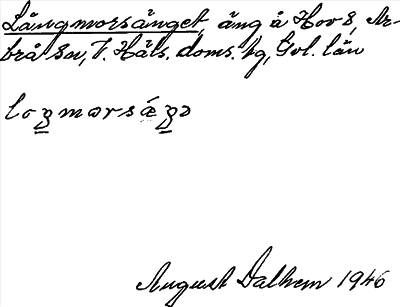 Långmorsänget, äng å Hov 8, Ar-
brå sn, V. Häls. doms. hg, Gvl. län
loŋmørsæ´ŋə
August Dalhem 1946